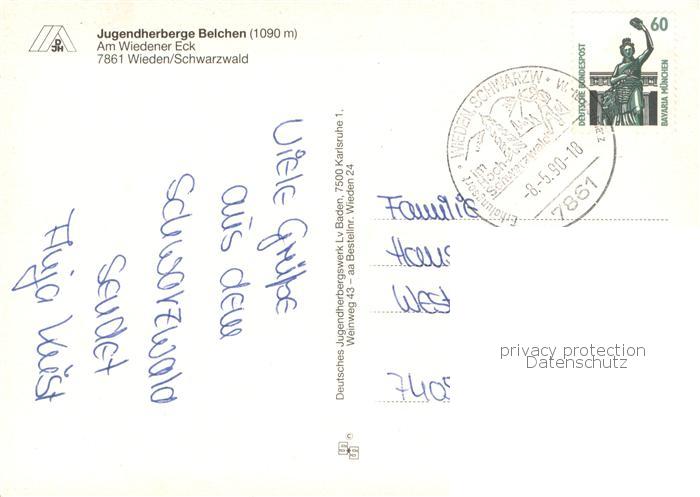 DJH
Jugendherberge Belchen (1090 m)
Am Wiedener Eck
7861 Wieden/Schwarzwald
Viele Grüße
aus dem
Schwarzwald
sendet
Deutsches Jugendherbergswerk Lv Baden, 7500 Karlsruhe 1,
Weinweg 43 – aa Bestellnr. Wieden 24
60
DEUTSCHE BUNDESPOST
BAVARIA MÜNCHEN
WIEDEN, SCHWARZW
Im
Hoch-
Schwarzwald
-8.-5.90-18
7861
Familie
Hans
West
7405
privacy protection
Datenschutz